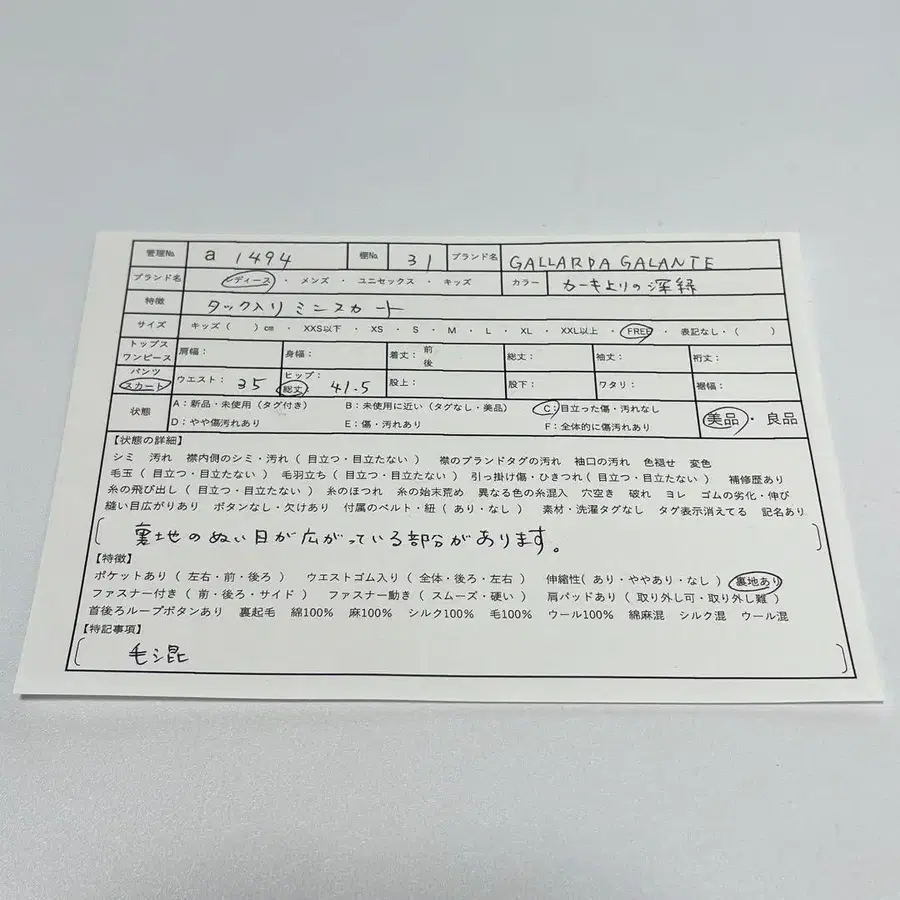 管理No. a 1494 棚No. 31 ブランド名 GALLARDA GALANTE
ブランド名 レディース ・ メンズ ・ ユニセックス ・ キッズ カラー カーキよりの深緑
特徴 タック入りミニスカート
サイズ キッズ( )cm ・ XXS以下 ・ XS ・ S ・ M ・ L ・ XL ・ XXL以上 ・ FREE ・ 表記なし・( )
トップス ワンピース 肩幅: 身幅: 着丈: 前 後 総丈: 袖丈: 裄丈:
パンツ スカート ウエスト: 35 ヒップ: 総丈: 41.5 股上: 股下: ワタリ: 裾幅:
状態 A:新品・未使用(タグ付き) B:未使用に近い(タグなし・美品) C:目立った傷・汚れなし 美品 ・ 良品
D:やや傷汚れあり E:傷・汚れあり F:全体的に傷汚れあり
【状態の詳細】
シミ 汚れ 襟内側のシミ・汚れ(目立つ・目立たない) 襟のブランドタグの汚れ 袖口の汚れ 色褪せ 変色
毛玉(目立つ・目立たない) 毛羽立ち(目立つ・目立たない) 引っ掛け傷・ひきつれ(目立つ・目立たない) 補修歴あり
糸の飛び出し(目立つ・目立たない) 糸のほつれ 糸の始末荒め 異なる色の糸混入 穴空き 破れ ヨレ ゴムの劣化・伸び
縫い目広がりあり ボタンなし・欠けあり 付属のベルト・紐(あり・なし) 素材・洗濯タグなし タグ表示消えてる 記名あり
裏地のぬい目が広がっている部分があります。
【特徴】
ポケットあり(左右・前・後ろ) ウエストゴム入り(全体・後ろ・左右) 伸縮性(あり・ややあり・なし) 裏地あり
ファスナー付き(前・後ろ・サイド) ファスナー動き(スムーズ・硬い) 肩パッドあり(取り外し可・取り外し難)
首後ろループボタンあり 裏起毛 綿100% 麻100% シルク100% 毛100% ウール100% 綿麻混 シルク混 ウール混
【特記事項】
毛混